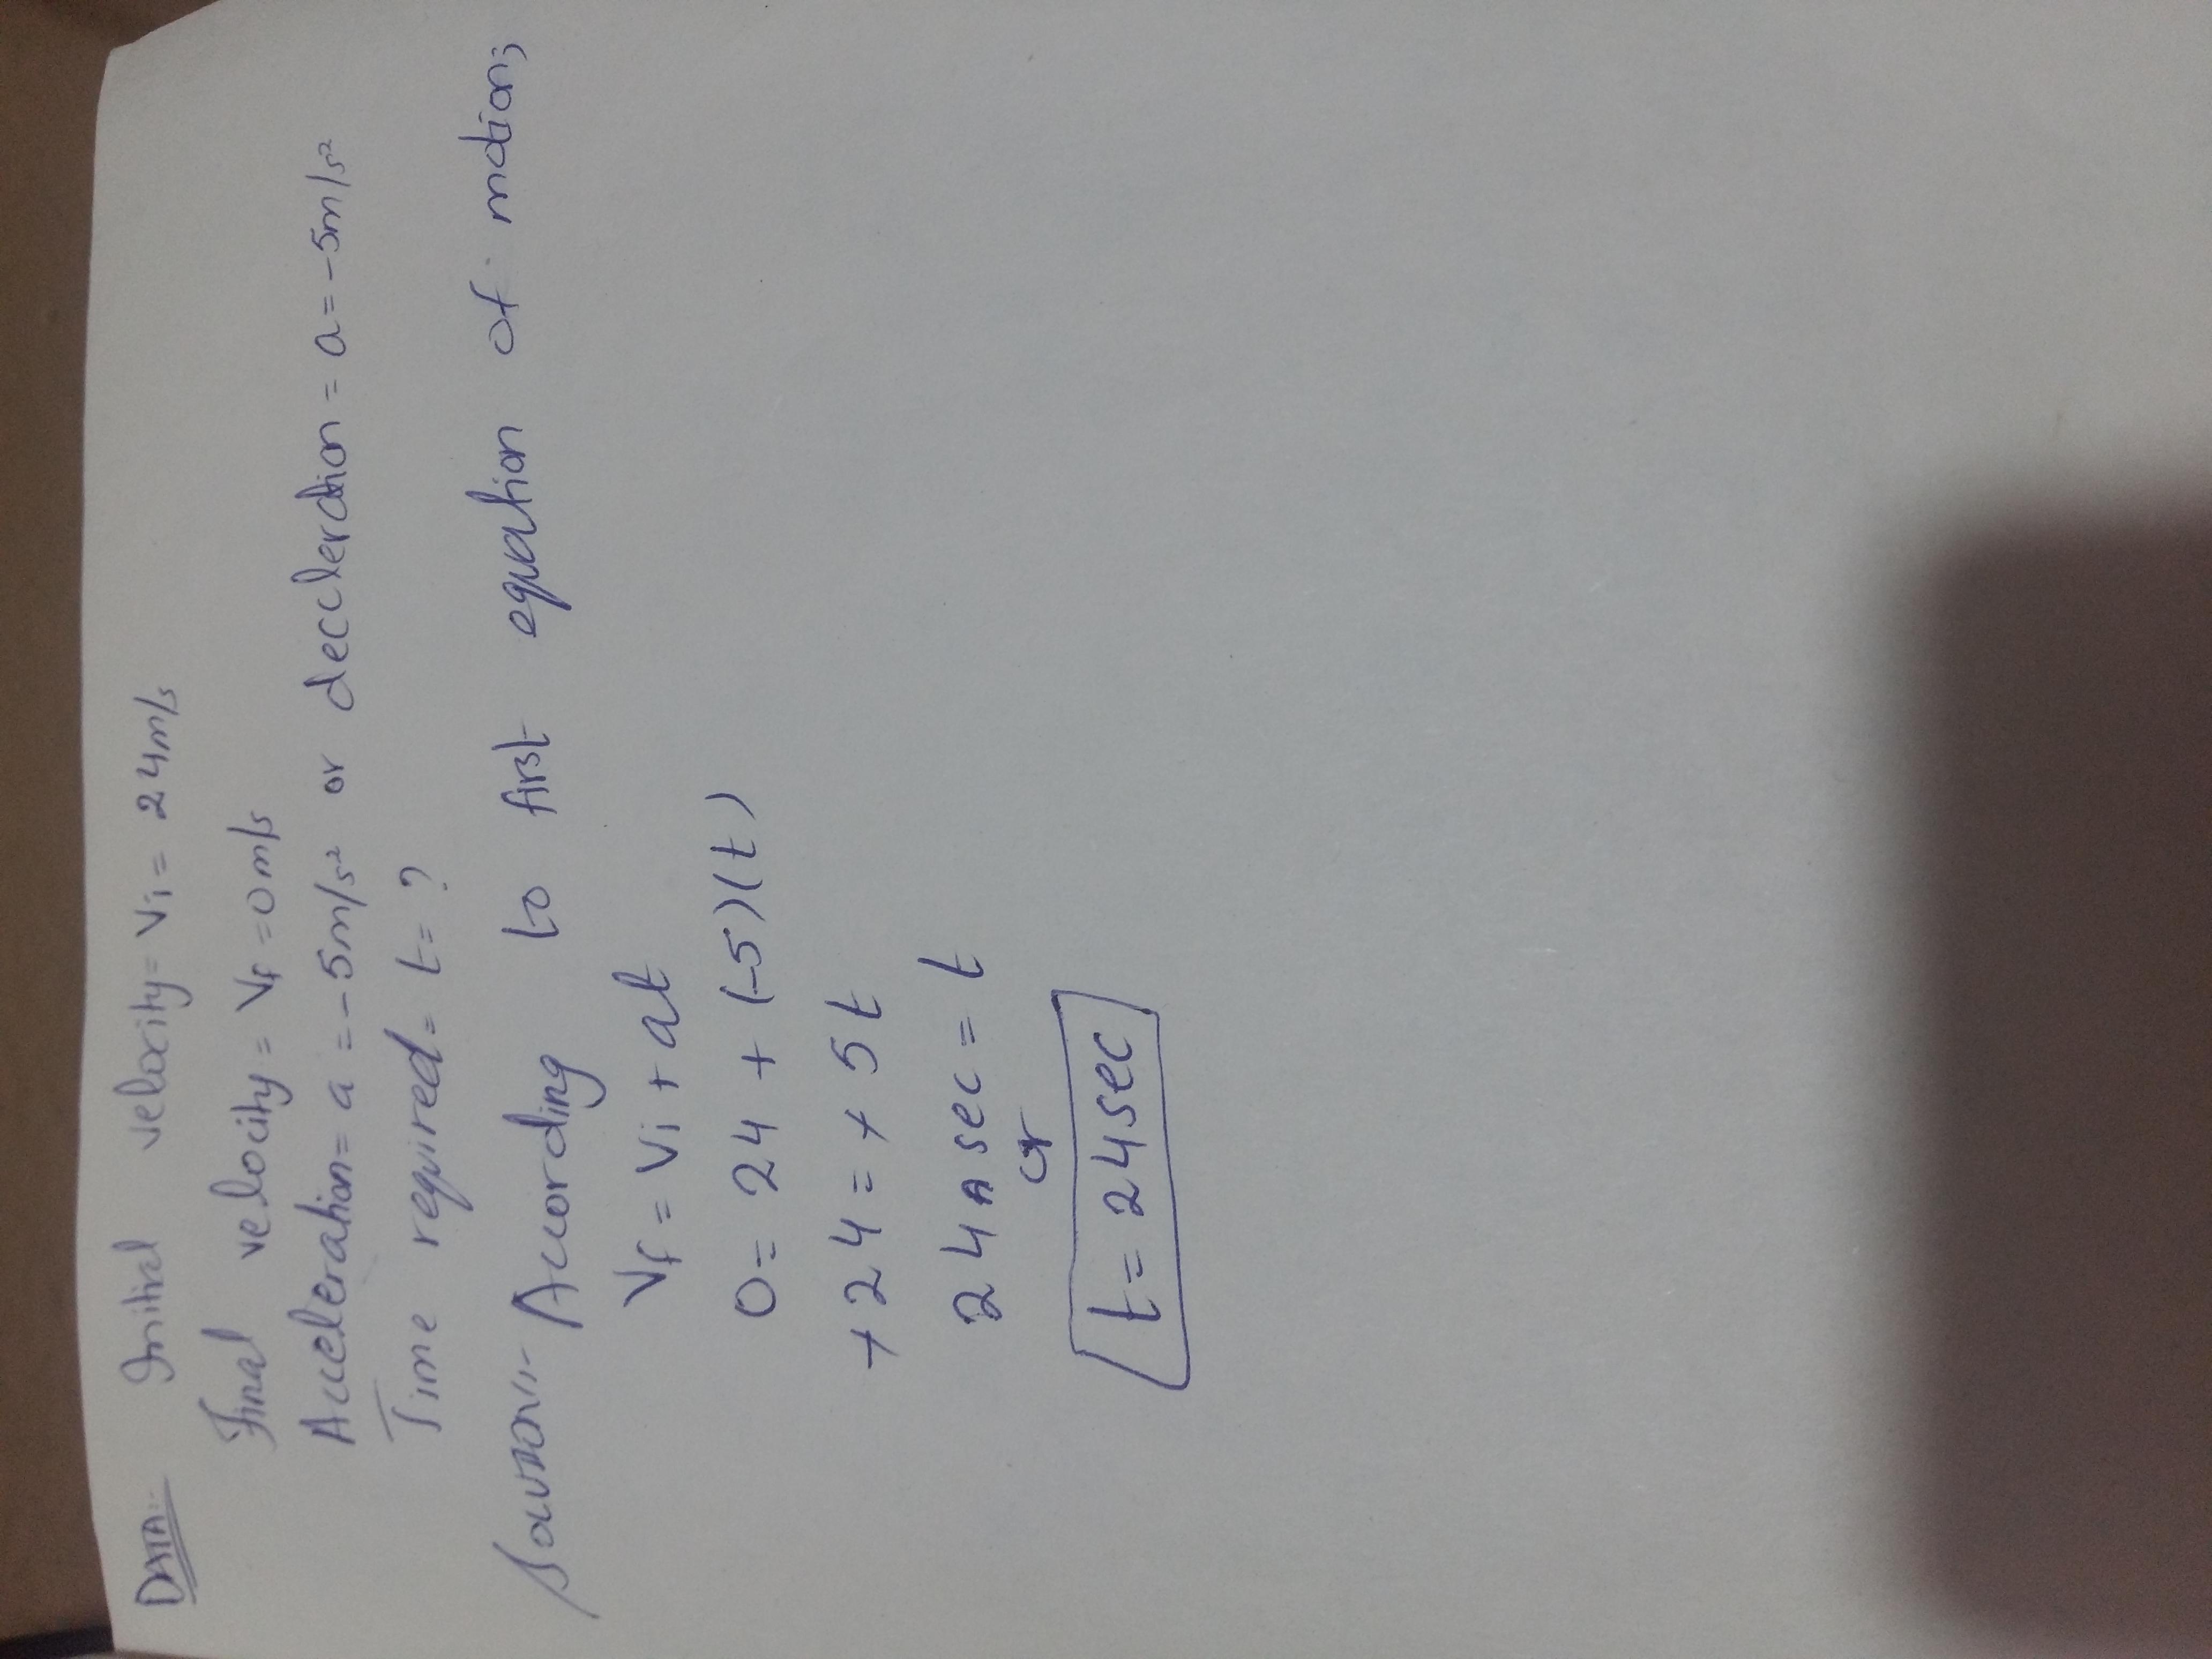 DATA:- Initial velocity = Vi = 24m/s
Final velocity = Vf = 0m/s
Acceleration = a = -5m/s² or deccleration = a = -5m/s²
Time required = t = ?
According to first equation of motion;
Vf = Vi + at
0 = 24 + (-5)(t)
+24 = +5t
24 sec = t
or
t = 24sec